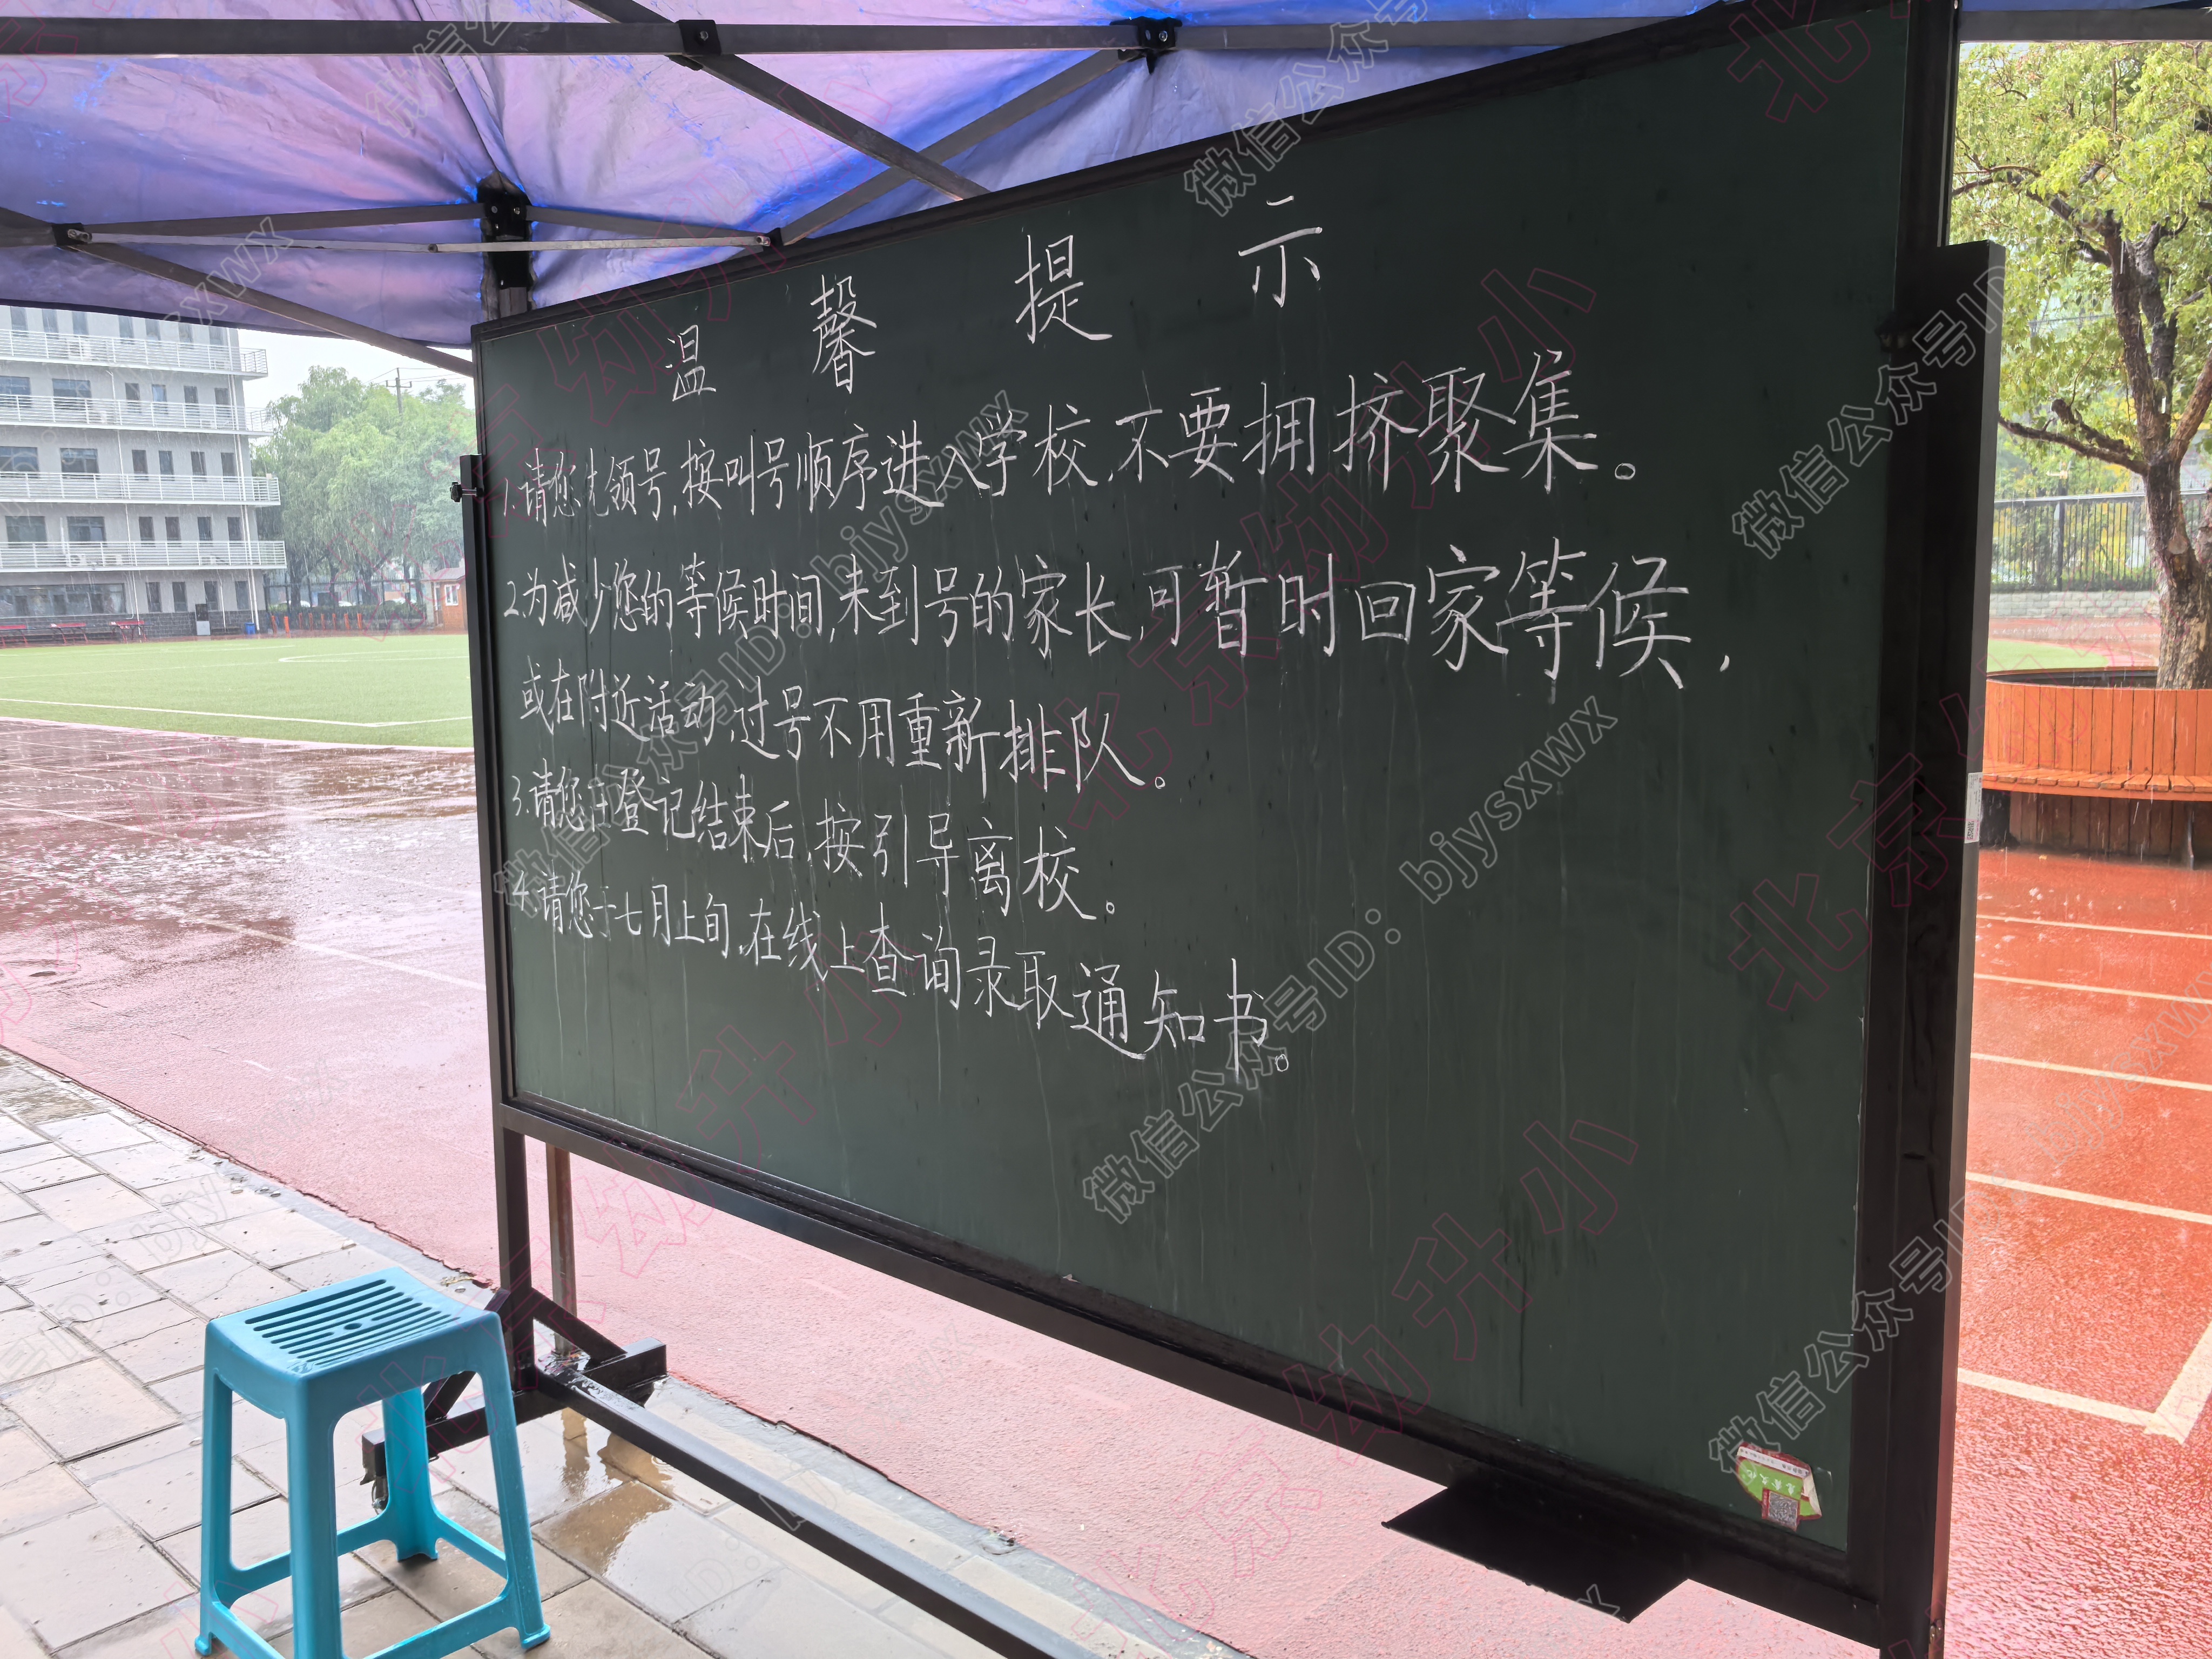 温馨提示
1.请您先领号,按叫号顺序进入学校,不要拥挤聚集。
2.为减少您的等候时间,未到号的家长,可暂时回家等候,
或在附近活动,过号不用重新排队。
3.请您在登记结束后,按引导离校。
4.请您于七月上旬,在线上查询录取通知书。
微信公众号ID:bjysxwx
北京幼升小